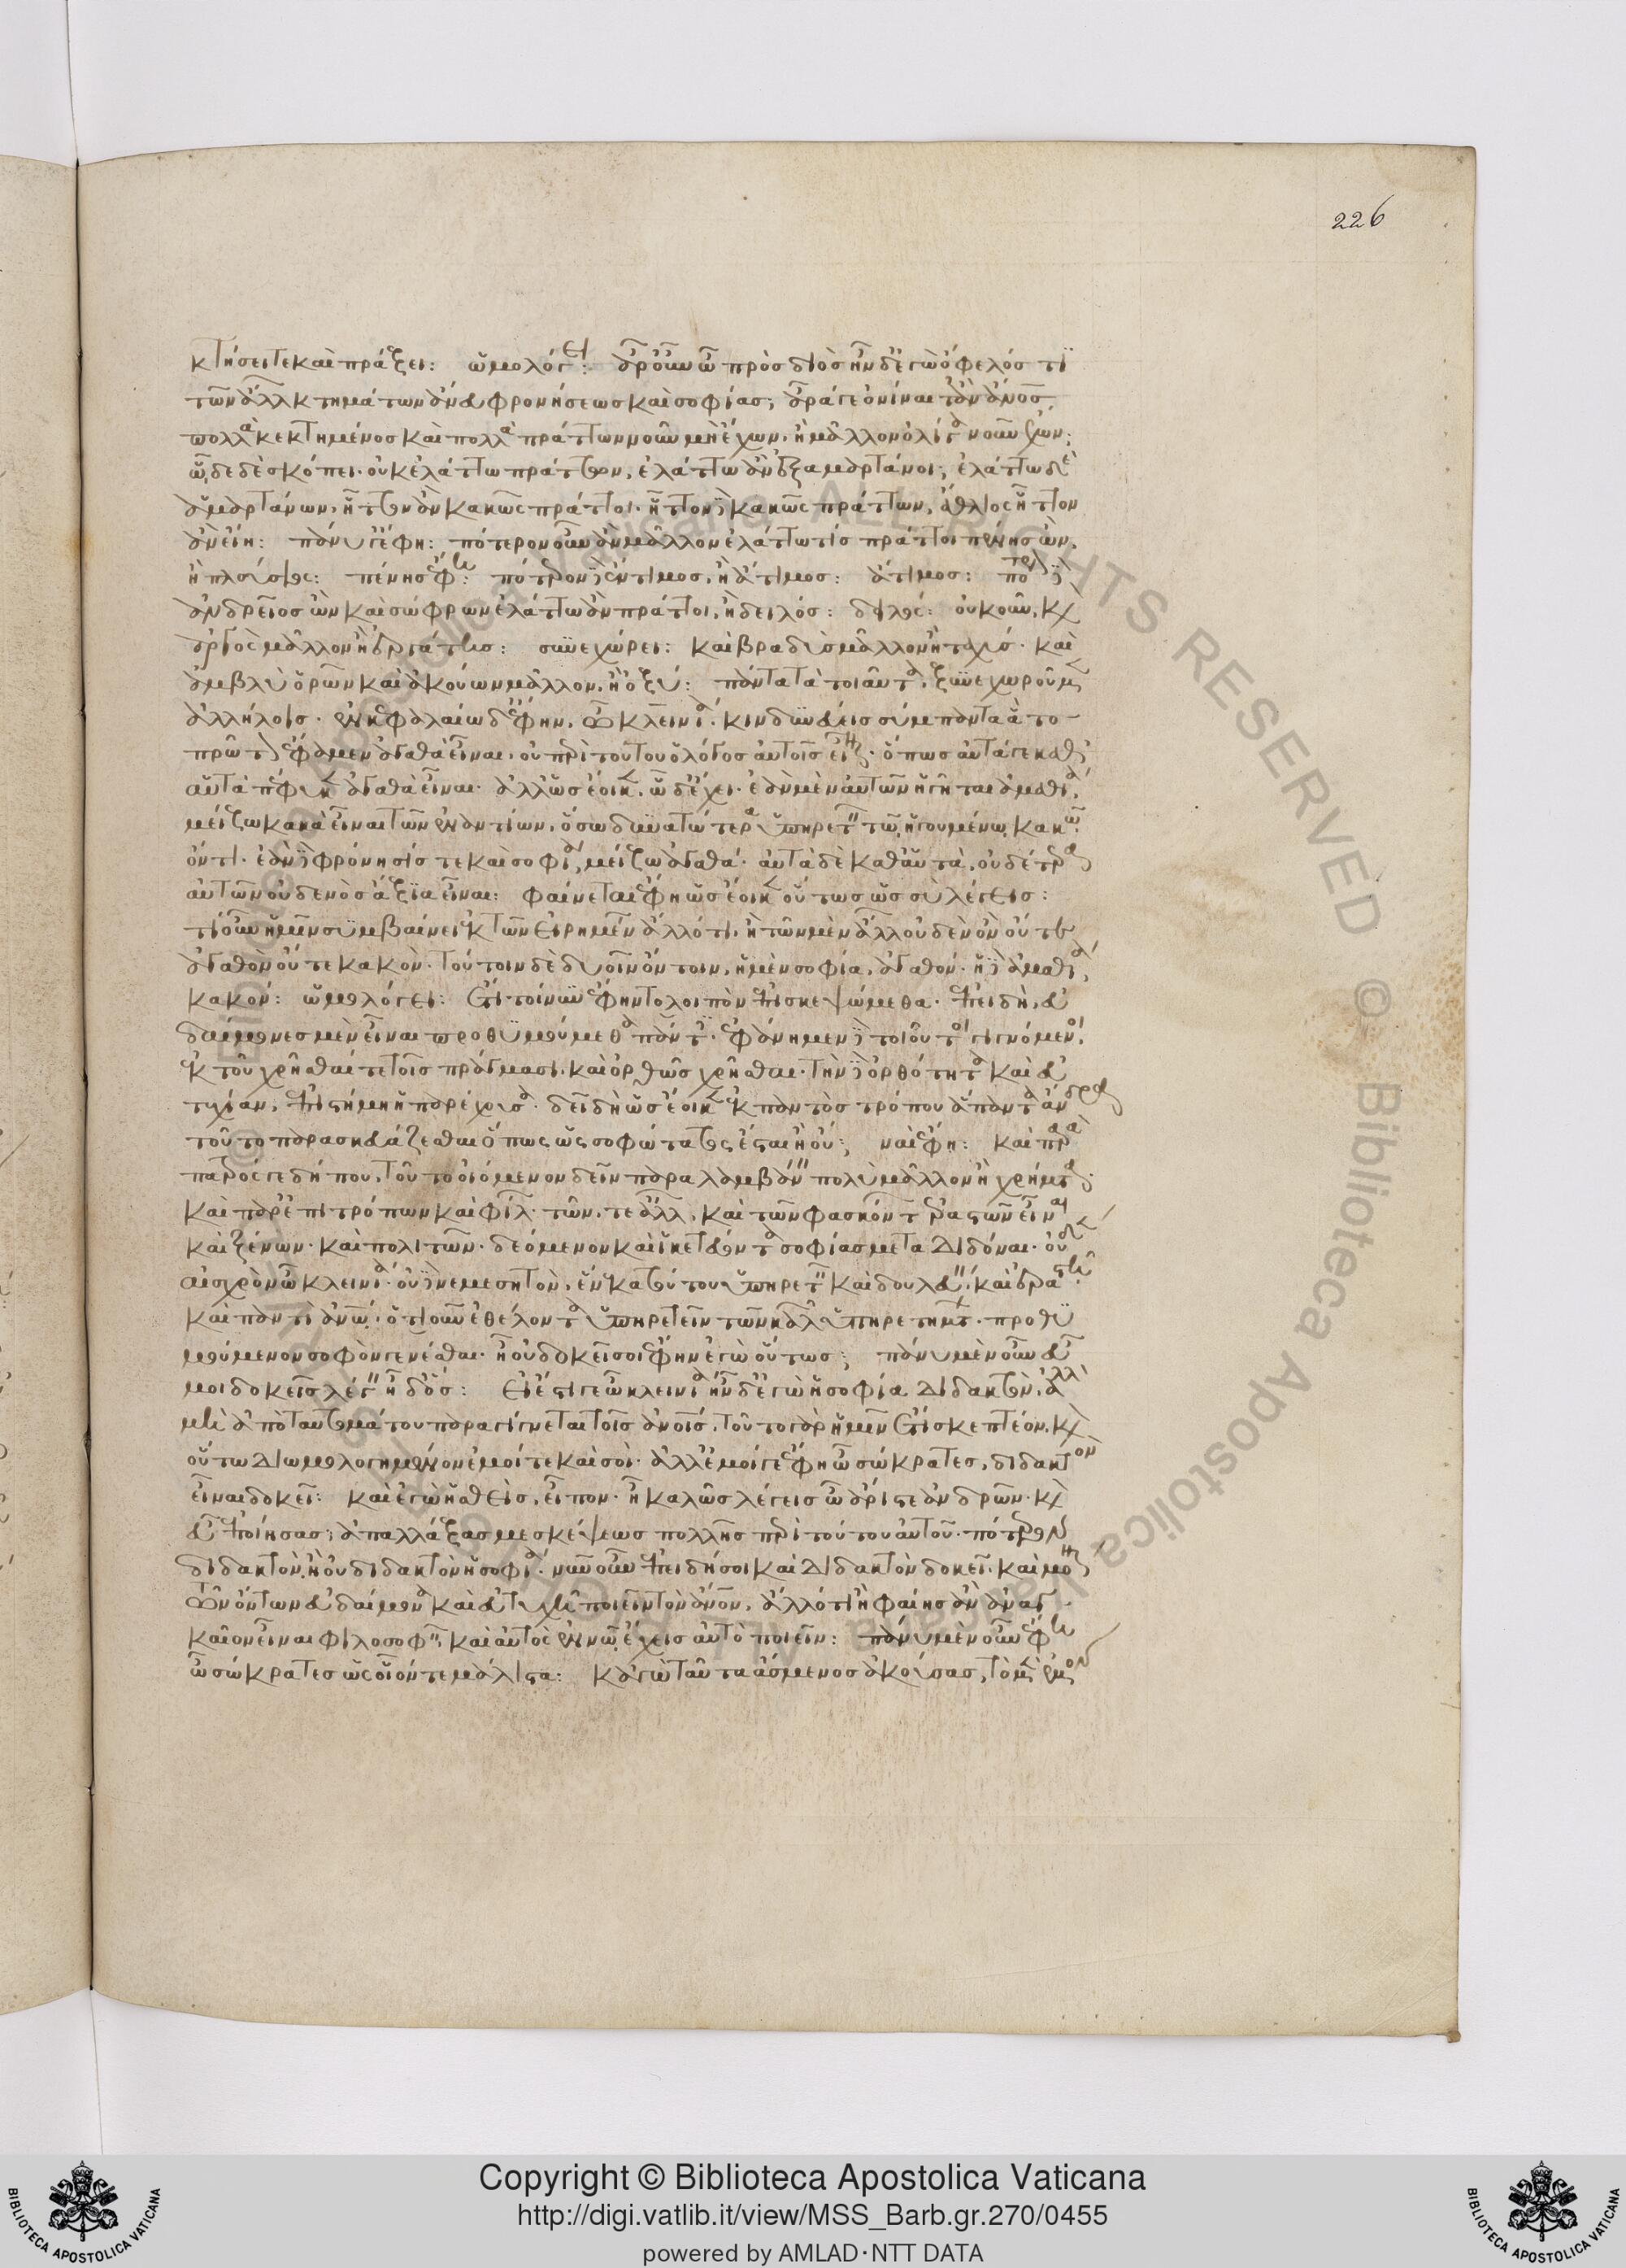 226
κτήσει τε καὶ πράξει: ὡμολόγει: ἆρ' οὖν ὦ πρὸς διὸς ἦν δ' ἐγὼ ὄφελός τι
τῶν ἄλλων κτημάτων ἄνευ φρονήσεως καὶ σοφίας; ἆρά γε ὀνίναιτ' ἂν ἄνθρωπος
πολλὰ κεκτημένος καὶ πολλὰ πράττων νοῦν μὴ ἔχων. ἢ μᾶλλον ὀλίγα νοῦν ἔχων;
ὧδε δὲ σκόπει. οὐκ ἐλάττω πράττων, ἐλάττω ἂν ἐξαμαρτάνοι; ἐλάττω δὲ
ἁμαρτάνων, ἧττον ἂν κακῶς πράττοι. ἧττον δὲ κακῶς πράττων, ἄθλιος ἧττον
ἂν εἴη: πάνυ γ' ἔφη: πότερον οὖν ἂν μᾶλλον ἐλάττω τίς πράττοι πένης ὢν,
ἢ πλούσιος: πένης ἔφη: πότερον δὲ ἔντιμος, ἢ ἄτιμος: ἄτιμος: πότερον δὲ
ἀνδρεῖος ὢν καὶ σώφρων ἐλάττω ἂν πράττοι, ἢ δειλός: δειλός: οὐκοῦν, καὶ
ἀργὸς μᾶλλον ἢ ἐργάτης: συνεχώρει: καὶ βραδὺς μᾶλλον ἢ ταχύς. καὶ
ἀμβλὺ ὁρῶν καὶ ἀκούων μᾶλλον, ἢ ὀξύ: πάντα τὰ τοιαῦτα, ξυνεχωροῦμεν
ἀλλήλοις. ἐν κεφαλαίῳ δ' ἔφην, ὦ κλεινία. κινδυνεύει σύμπαντα ἃ τὸ
πρῶτον ἔφαμεν ἀγαθὰ εἶναι. οὐ περὶ τούτου ὁ λόγος αὐτοῖς εἶναι. ὅπως αὐτά γε καθ'
αὑτὰ πέφυκεν ἀγαθὰ εἶναι. ἀλλ' ὡς ἔοικεν, ὧδ' ἔχει. ἐὰν μὲν αὐτῶν ἡγῆται ἀμαθία,
μείζω κακὰ εἶναι τῶν ἐναντίων, ὅσω δυνατώτερα ὑπηρετεῖν τῷ ἡγουμένῳ κακῷ
ὄντι. ἐὰν δὲ φρόνησίς τε καὶ σοφία, μείζω ἀγαθά. αὐτὰ δὲ καθ' αὑτὰ, οὐδέτερα
αὐτῶν οὐδενὸς ἄξια εἶναι: φαίνεται ἔφη ὡς ἔοικεν οὕτως ὡς σὺ λέγεις:
τί οὖν ἡμῖν συμβαίνει ἐκ τῶν εἰρημένων ἄλλό τι, ἢ τῶν μὲν ἄλλων οὐδὲν ὂν οὔτε
ἀγαθὸν οὔτε κακόν. τούτοιν δὲ δυοῖν ὄντοιν, ἡ μὲν σοφία, ἀγαθόν. ἡ δὲ ἀμαθία,
κακόν: ὡμολόγει: ἔτι τοίνυν ἔφην τὸ λοιπὸν ἐπισκεψώμεθα. ἐπειδὴ, εὐ
δαίμονες μὲν εἶναι προθυμούμεθα πάντες. ἐφάνημεν δὲ τοιοῦτοι γιγνόμενοι
ἐκ τοῦ χρῆσθαί τε τοῖς πράγμασι. καὶ ὀρθῶς χρῆσθαι. τὴν δὲ ὀρθότητα καὶ εὐ
τυχίαν, ἐπιστήμη ἡ παρέχουσα. δεῖ δὴ ὡς ἔοικεν ἐκ παντὸς τρόπου ἅπαντα ἄνδρα
τοῦτο παρασκευάζεσθαι ὅπως ὡς σοφώτατος ἔσται ἢ οὔ; ναὶ ἔφη: καὶ παρὰ
πατρός γε δήπου. τοῦτο οἰόμενον δεῖν παραλαμβάνειν πολὺ μᾶλλον ἢ χρήματα.
καὶ παρ' ἐπιτρόπων καὶ φίλων. τῶν. τε ἄλλων. καὶ τῶν φασκόντων ἐραστῶν εἶναι
καὶ ξένων. καὶ πολιτῶν. δεόμενον καὶ ἱκετεύοντα σοφίας μεταδιδόναι. οὐδὲν
αἰσχρὸν ὦ κλεινία. οὐδὲ νεμεσητὸν, ἕνεκα τούτου ὑπηρετεῖν καὶ δουλεύειν. καὶ ἐραστῇ
καὶ παντὶ ἀνθρώπῳ. ὁτιοῦν ἐθέλοντα ὑπηρετεῖν τῶν καλῶν ὑπηρετημάτων. προθυ
μούμενον σοφὸν γενέσθαι. ἢ οὐ δοκεῖ σοι ἔφην ἐγὼ οὕτως; πάνυ μὲν οὖν εὖ
μοι δοκεῖς λέγειν ἦ δ' ὅς: εἰ ἔστι γε ὦ κλεινία ἦν δ' ἐγὼ ἡ σοφία διδακτὸν, ἀλλὰ
μὴ ἀπὸ ταυτομάτου παραγίγνεται τοῖς ἀνθρώποις. τοῦτο γὰρ ἡμῖν ἔτι ἄσκεπτέον. καὶ
οὔπω διωμολογημένον ἐμοί τε καὶ σοί. ἀλλ' ἔμοιγε ἔφη ὦ σώκρατες, διδακτὸν
εἶναι δοκεῖ: καὶ ἐγὼ ἡσθεὶς, εἶπον. ἦ καλῶς λέγεις ὦ ἄριστε ἀνδρῶν. καὶ
εὖ ἐποίησας; ἀπαλλάξας με σκέψεως πολλῆς περὶ τούτου αὐτοῦ. πότερον
διδακτὸν, ἢ οὐ διδακτὸν ἡ σοφία. νῦν οὖν ἐπειδή σοι καὶ διδακτὸν δοκεῖ. καὶ μόνον
τῶν ὄντων εὐδαίμονα καὶ εὐτυχῆ ποιεῖν τὸν ἄνθρωπον, ἄλλό τι ἢ φαίης ἂν ἀναγ
καῖον εἶναι φιλοσοφεῖν. καὶ αὐτὸς ἐν νῷ ἔχεις αὐτὸ ποιεῖν: πάνυ μὲν οὖν ἔφη
ὦ σώκρατες ὡς οἷόν τε μάλιστα: κἀγὼ ταῦτα ἄσμενος ἀκούσας, τὸ μὲν ἐμὸν
Copyright © Biblioteca Apostolica Vaticana
http://digi.vatlib.it/view/MSS_Barb.gr.270/0455
powered by AMLAD·NTT DATA
BIBLIOTECA APOSTOLICA VATICANA
BIBLIOTECA APOSTOLICA VATICANA